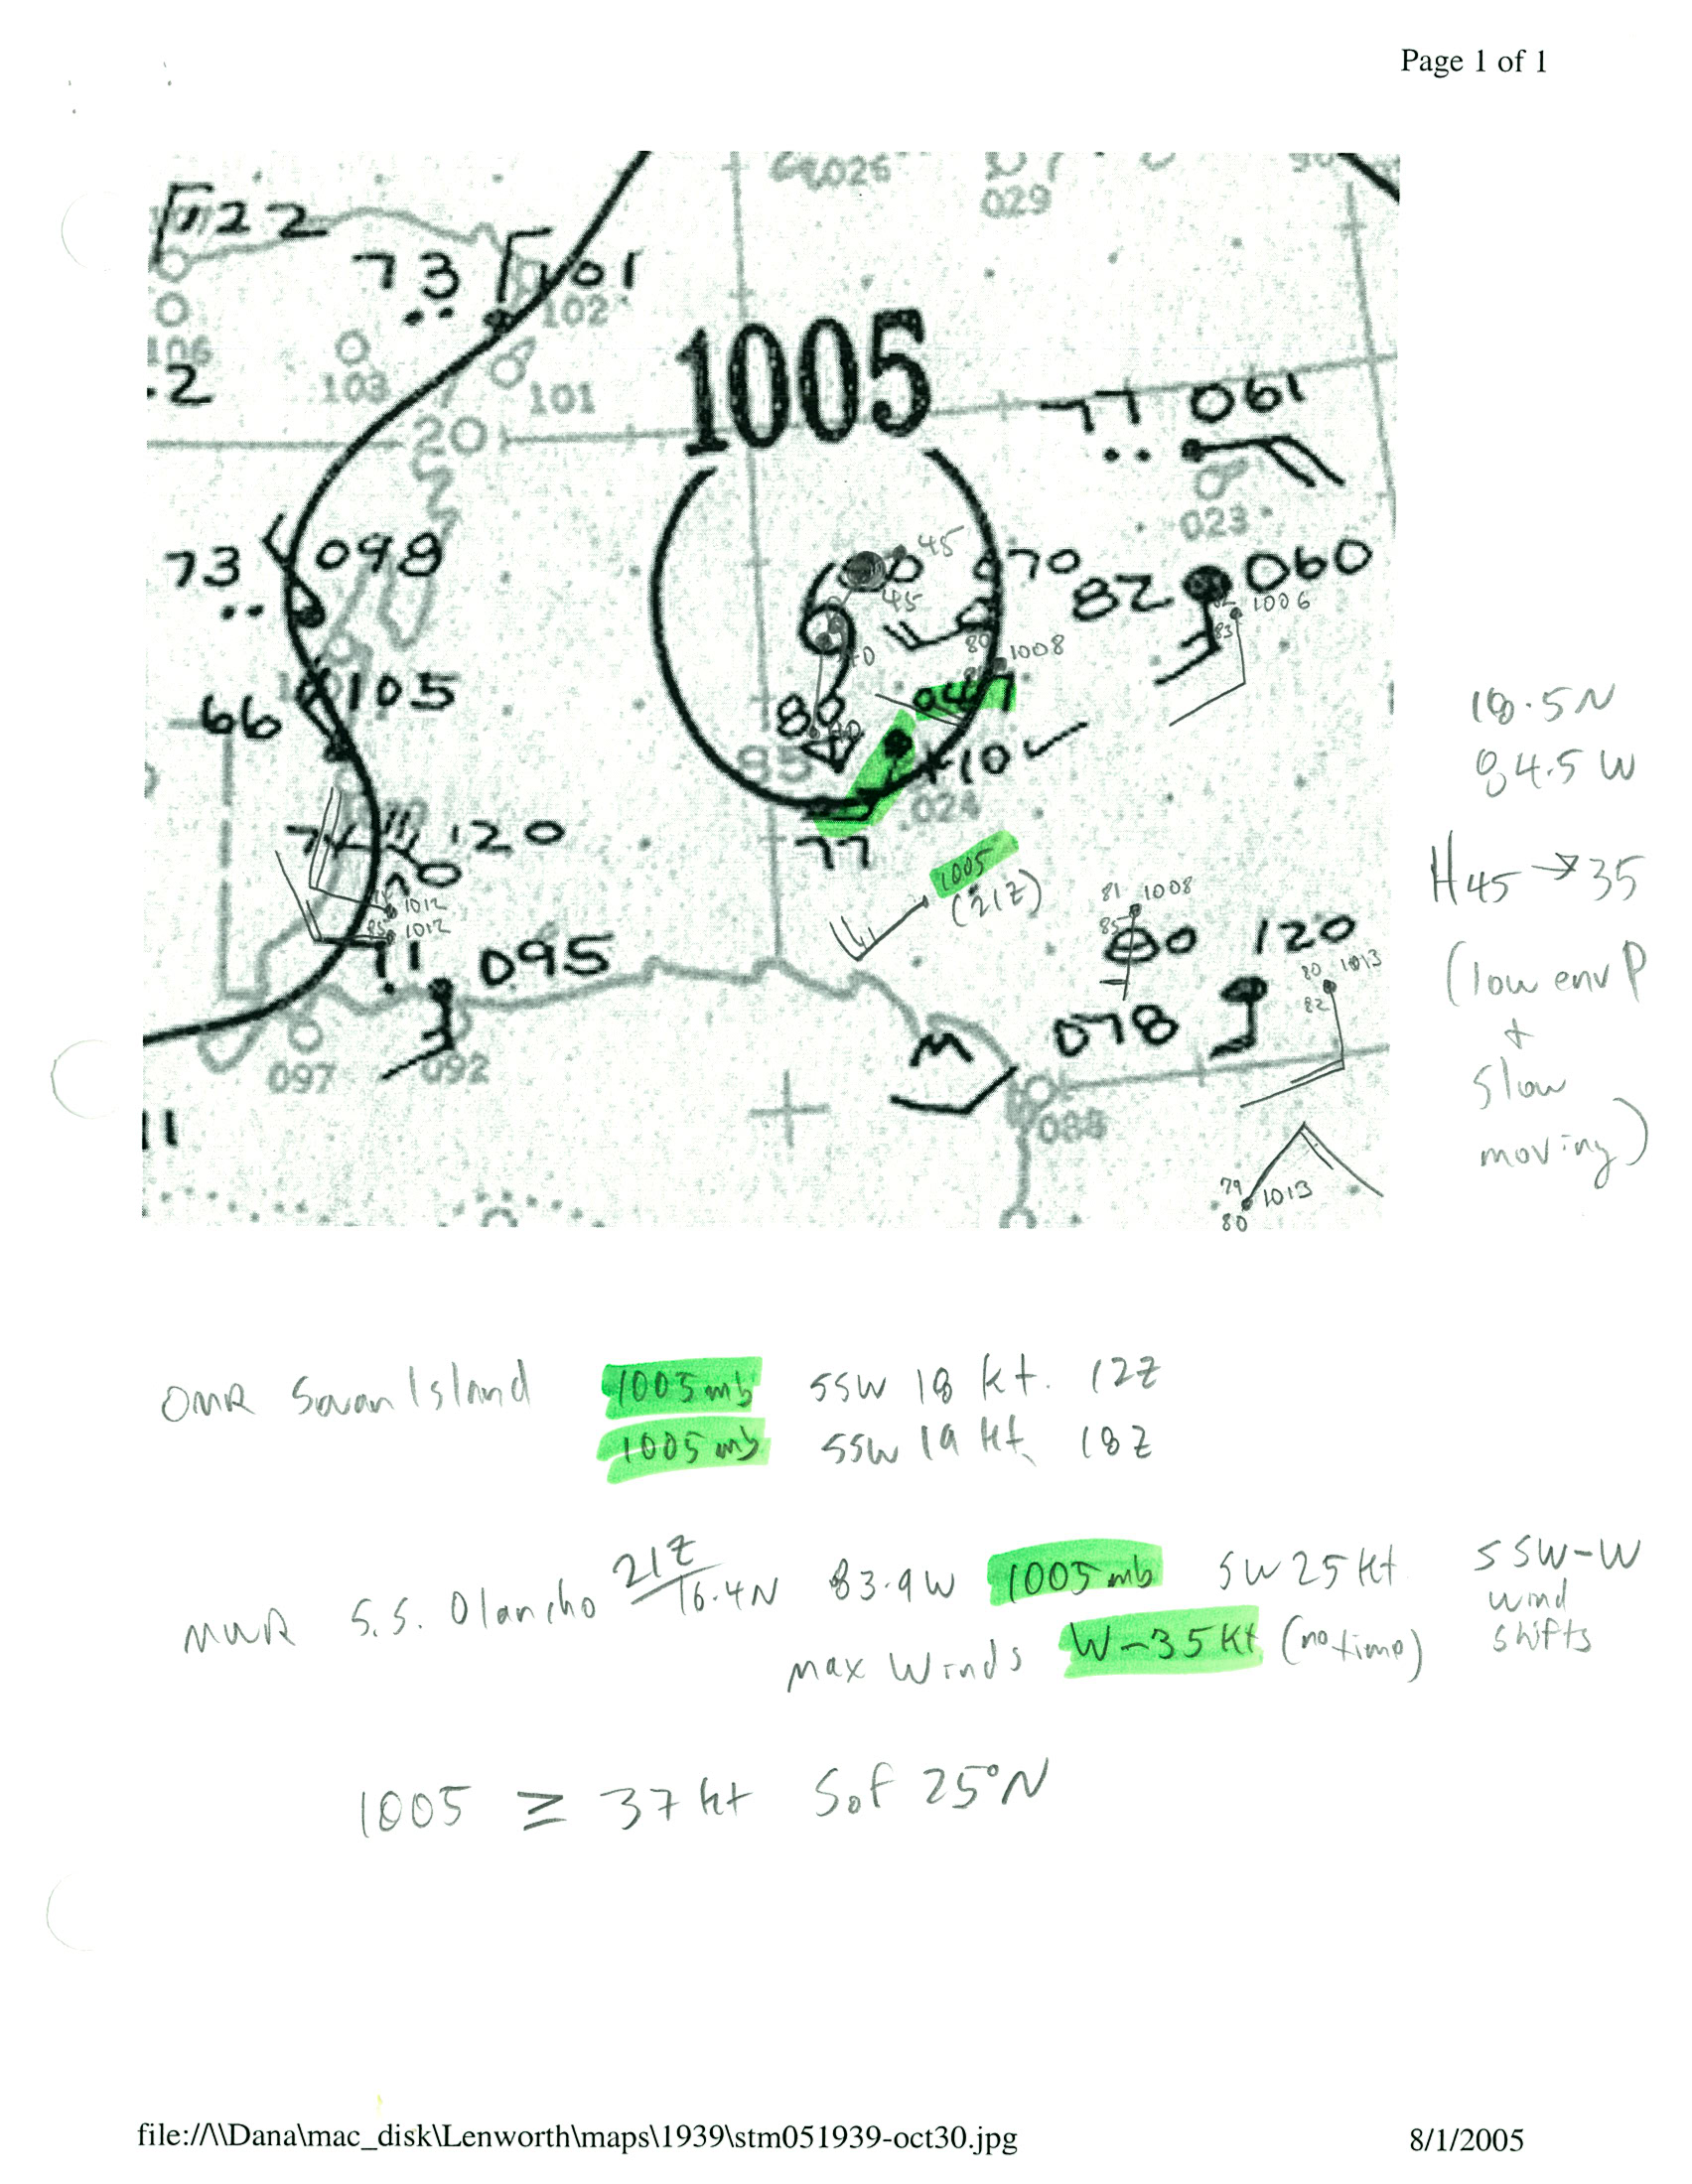 Page 1 of 1
69,026
029
122
73 101
102
106
.2
103
101
1005
20
77 061
023
73 098
45
70
82 060
45
1006
83
80
1008
66 105
80
047
+10
85
024
77
1005
(21Z)
120
1012
85 1012
81 1008
85
80 120
80 1013
82
71 095
078
M
097
092
088
11
79 1013
80
18.5N
84.5W
H45→35
(low env P
+
slow
moving)
OMR Swan Island 1005mb SSW 18 kt. 12Z
1005mb SSW 19 kt 18Z
MWR S.S. Olancho 21Z 16.4N 83.9W 1005mb SW 25 kt SSW-W
wind
shifts
max winds W-35kt (no time)
1005 ≥ 37 kt S of 25°N
file://\\Dana\mac_disk\Lenworth\maps\1939\stm051939-oct30.jpg
8/1/2005